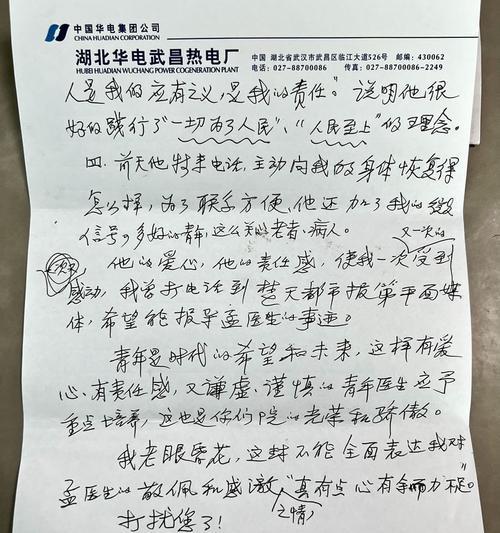 中国华电集团公司
CHINA HUADIAN CORPORATION
湖北华电武昌热电厂
HUBEI HUADIAN WUCHANG POWER COGENERATION PLANT
中国 湖北省武汉市武昌区临江大道526号 邮编：430062
电话：027-88700086 传真：027-88700086-2249
人是我的应有之义，是我的责任”说明他很
好的践行了“一切为了人民”、“人民至上”的理念。
四. 前天他特来电话，主动问我的身体恢复得
怎么样，为了联系方便，他还加了我的微
信号。多好的，这么的老者、病人。
又一次的
他的爱心，他的责任感，使我一次受到
感动，我曾打电话到楚天都市报第平面媒
体，希望能报导孟医生的事迹。
青年是时代的希望和未来，这样有爱
心、有责任感，又谦虚、谨慎的青年医生应予
重点培养，这也是你们院的光荣和骄傲。
我老眼昏花，这封不能全面表达我对
孟医生的敬佩和感激“真有点心有余而力不足”
之情
打扰您了！